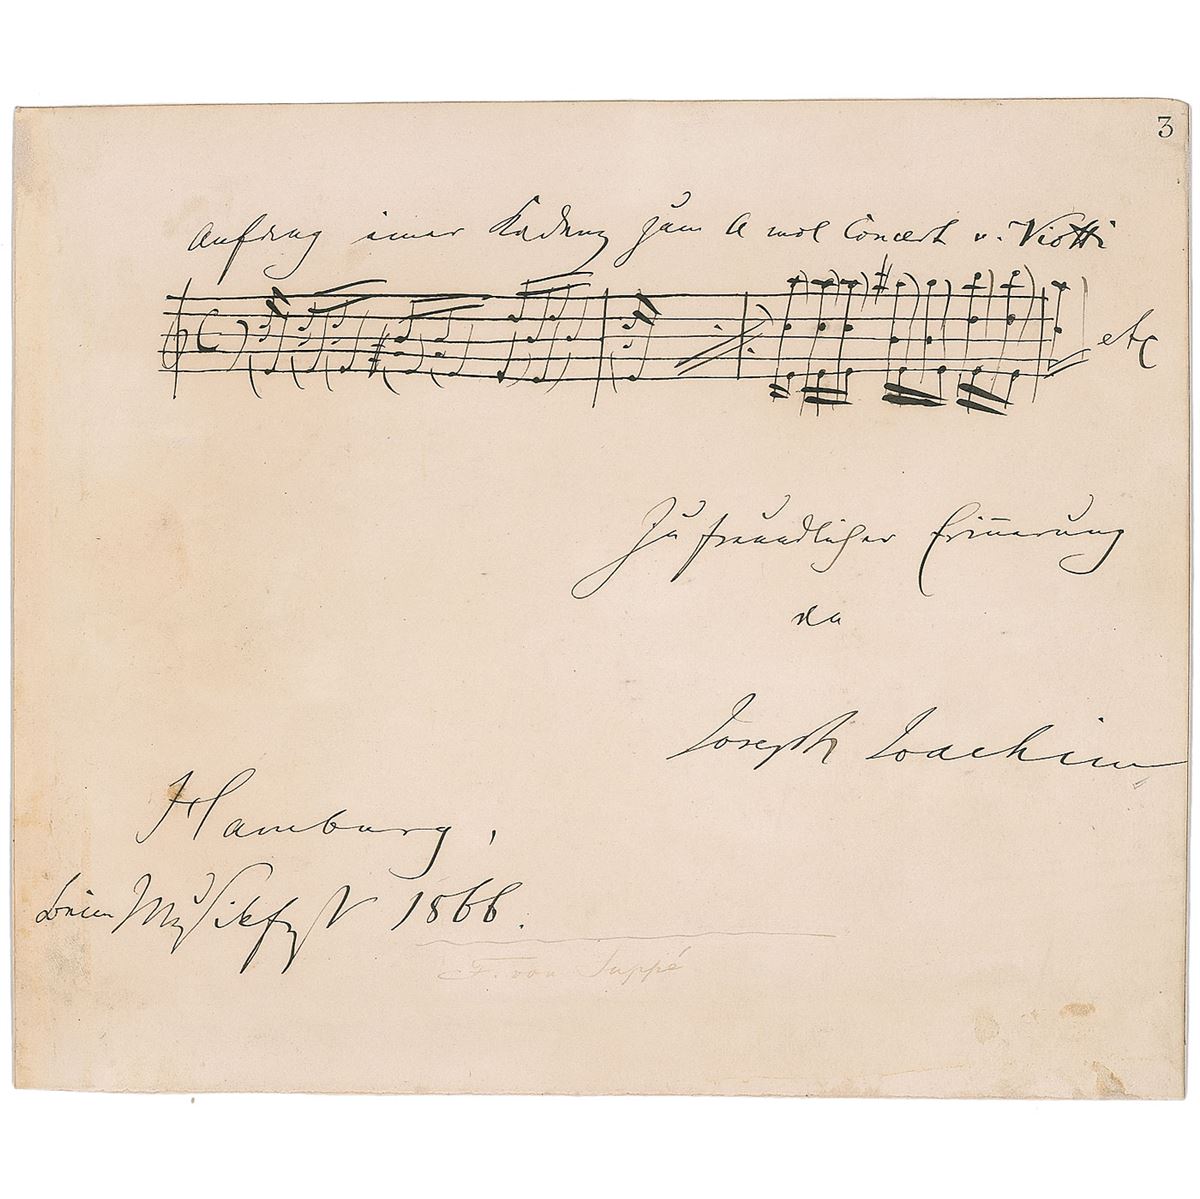 3
Anfang einer Kadenz zum A mol Concert v. Viotti
etc
Zu freundlicher Erinnerung
an
Joseph Joachim
Hamburg,
beim Musikfest 1866.
F. von Suppé